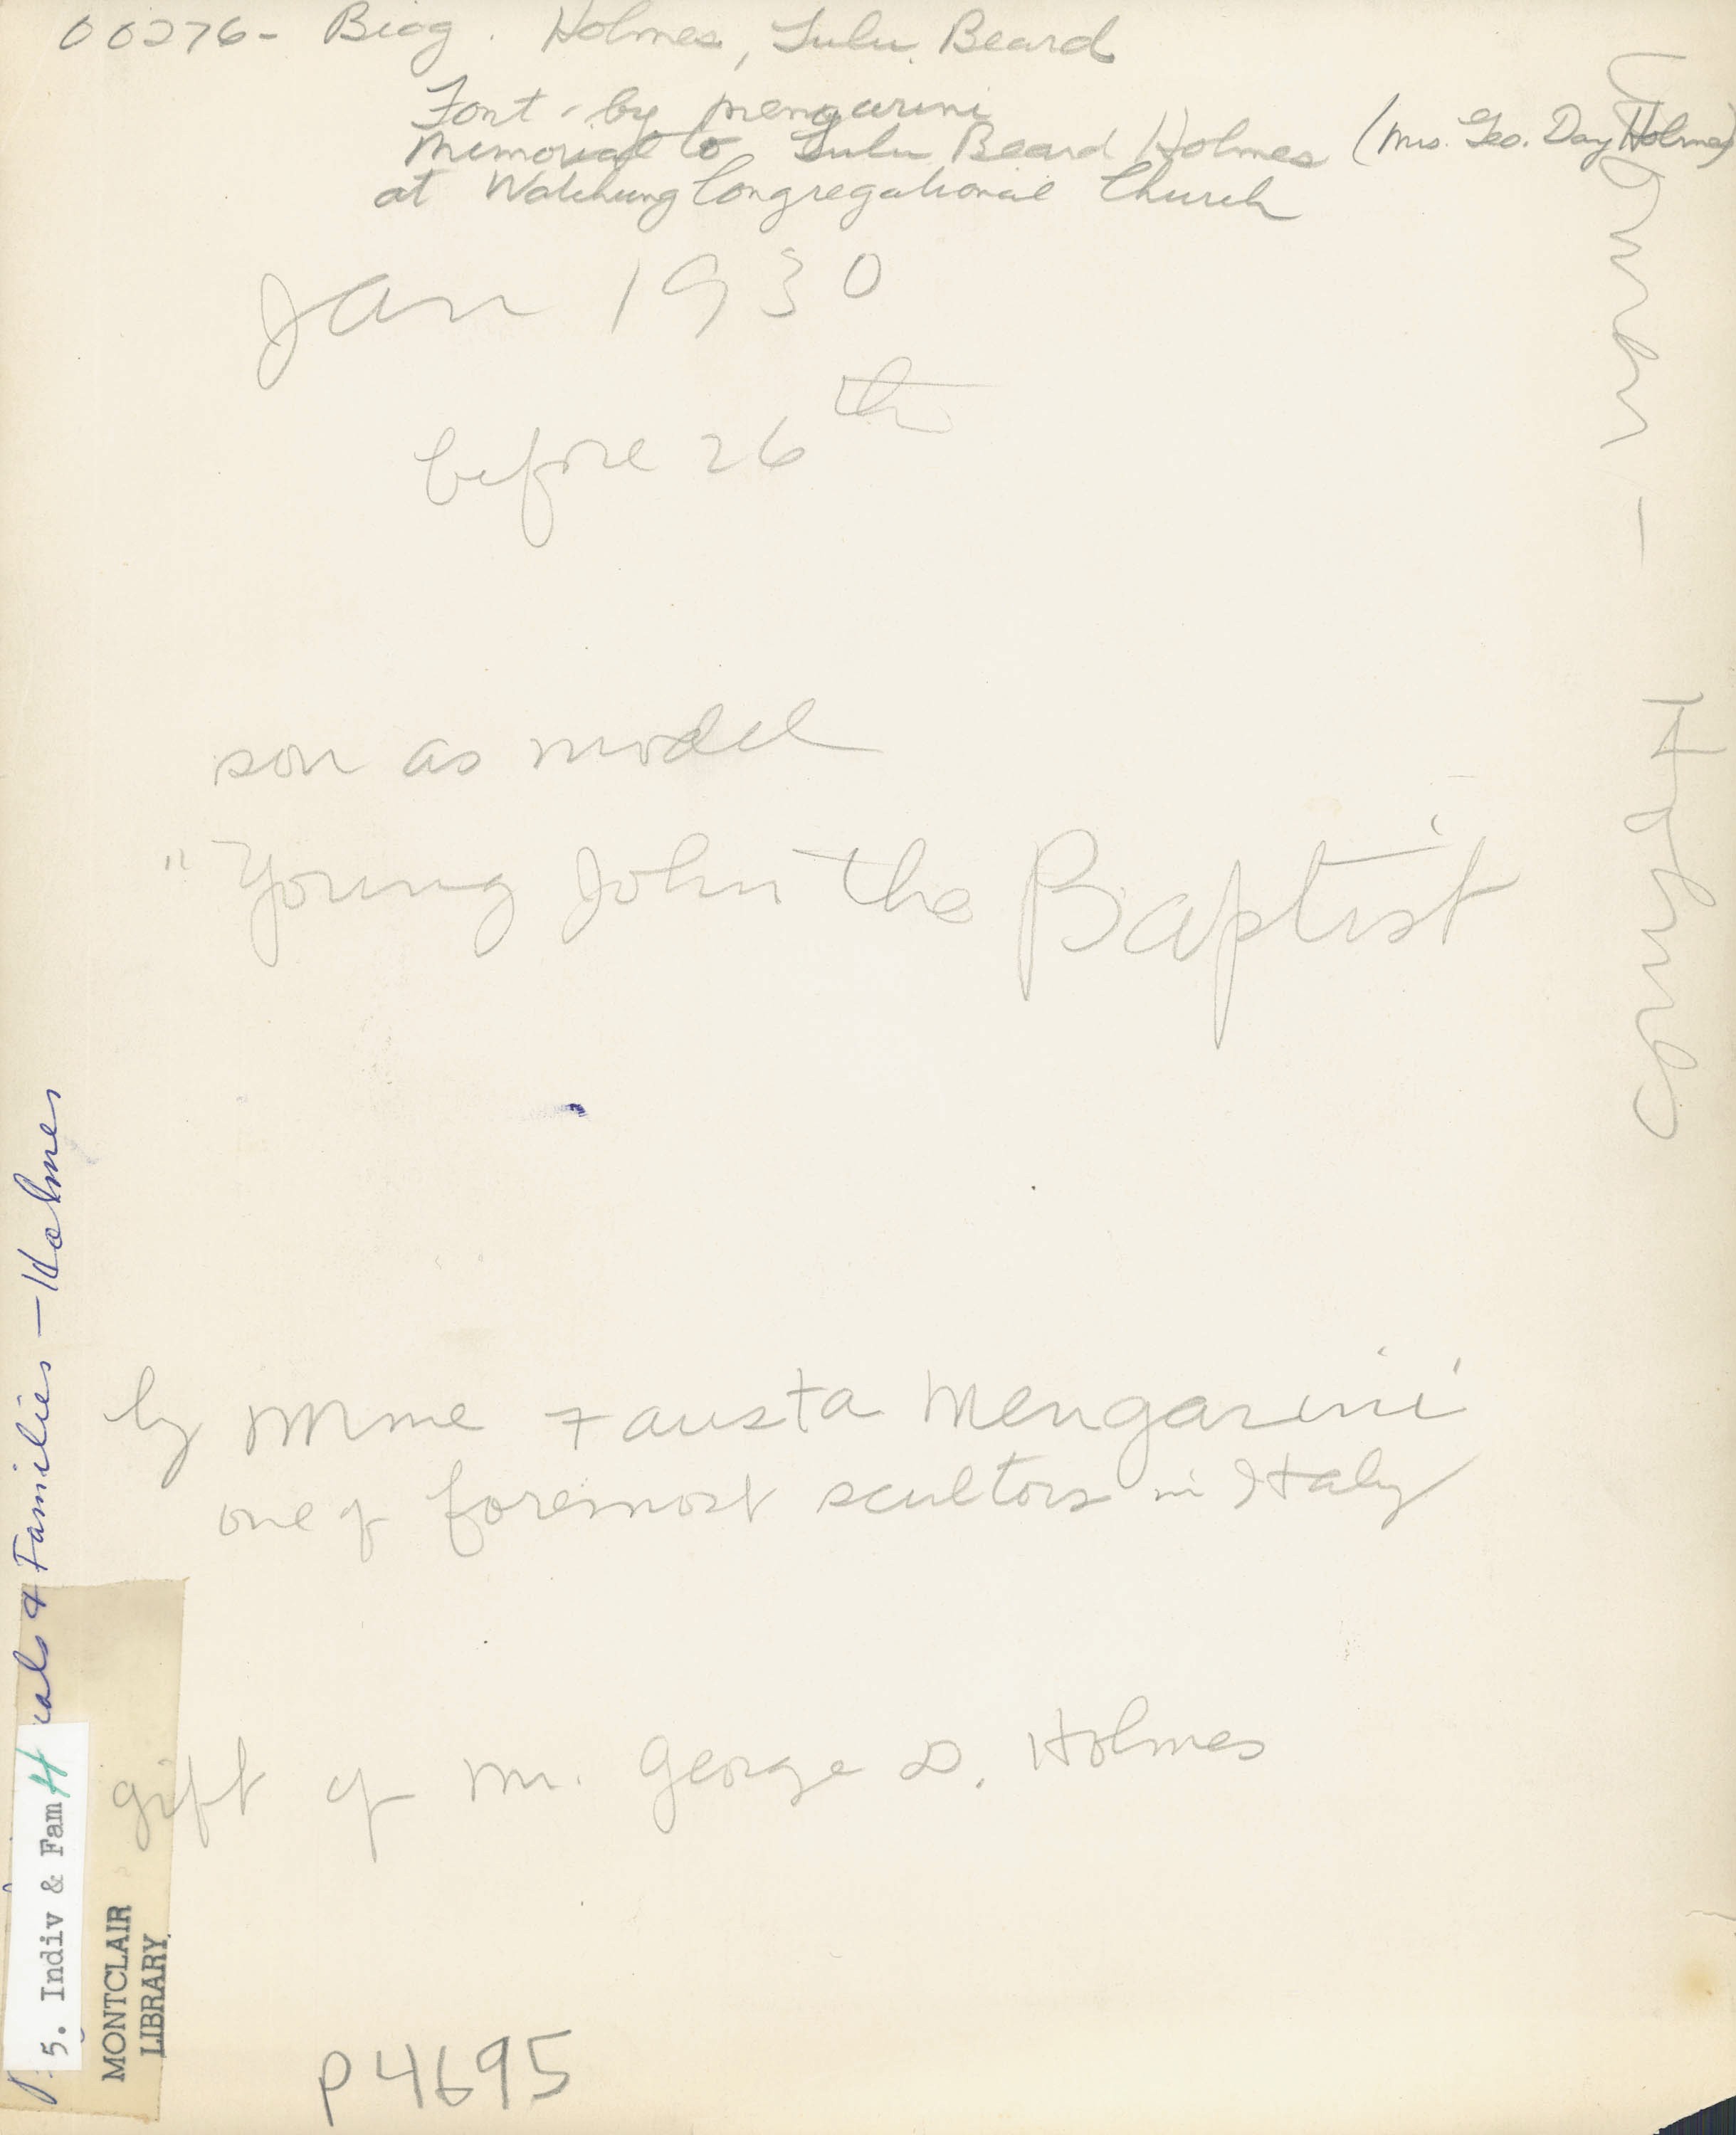 00276- Biog. Holmes, Lulu Beard
Font - by Mengarini
Memorial to Lulu Beard Holmes (Mrs. Geo. Day Holmes)
at Watchung Congregational Church
Jan 1930
before 26th
son as model
"Young John the Baptist
by Mme Fausta Mengarini
one of foremost scultors in Italy
gift of Mr. George D. Holmes
P4695
& Families — Holmes
5. Indiv & Fam H
MONTCLAIR
LIBRARY